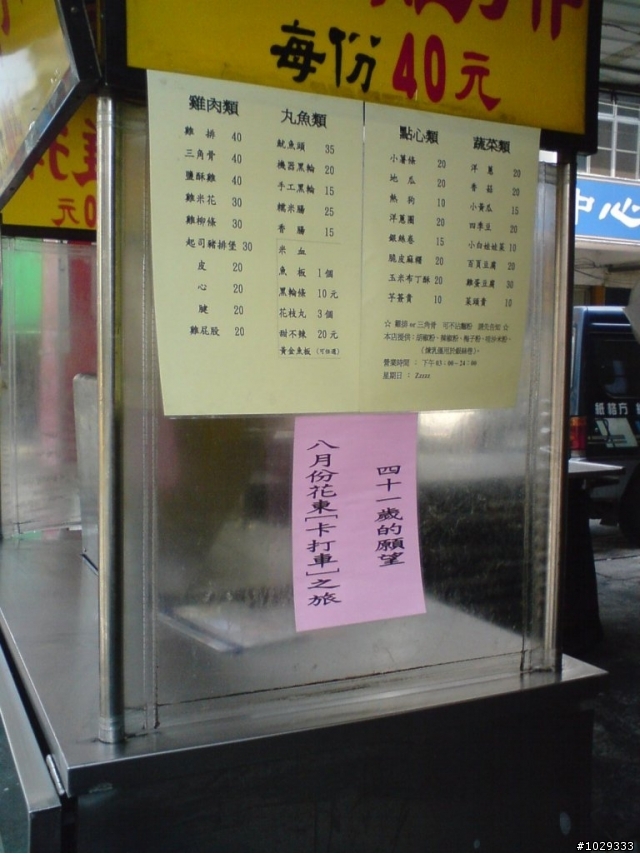 每份40元
元
中心
雞肉類
雞排 40
三角骨 40
鹽酥雞 40
雞米花 30
雞柳條 30
起司豬排堡 30
皮 20
心 20
腱 20
雞屁股 20
丸魚類
魷魚頭 35
機器黑輪 20
手工黑輪 15
糯米腸 25
香腸 15
米血
魚板 1個
黑輪條 10元
花枝丸 3個
甜不辣 20元
黃金魚板 (可任選)
點心類
小薯條 20
地瓜 20
熱狗 10
洋蔥圈 20
銀絲卷 15
脆皮麻糬 20
玉米布丁酥 20
芋薯貴 10
蔬菜類
洋蔥 20
香菇 20
小黃瓜 15
四季豆 20
小白娃娃菜 10
百頁豆腐 20
雞蛋豆腐 30
菜頭貴 10
☆ 雞排 or 三角骨 可不沾麵粉 請先告知 ☆
本店提供：胡椒粉、辣椒粉、梅子粉、
營業時間：下午03:00~24:00
星期日：
四十一歲的願望
八月份花東[卡打車]之旅
#1029333